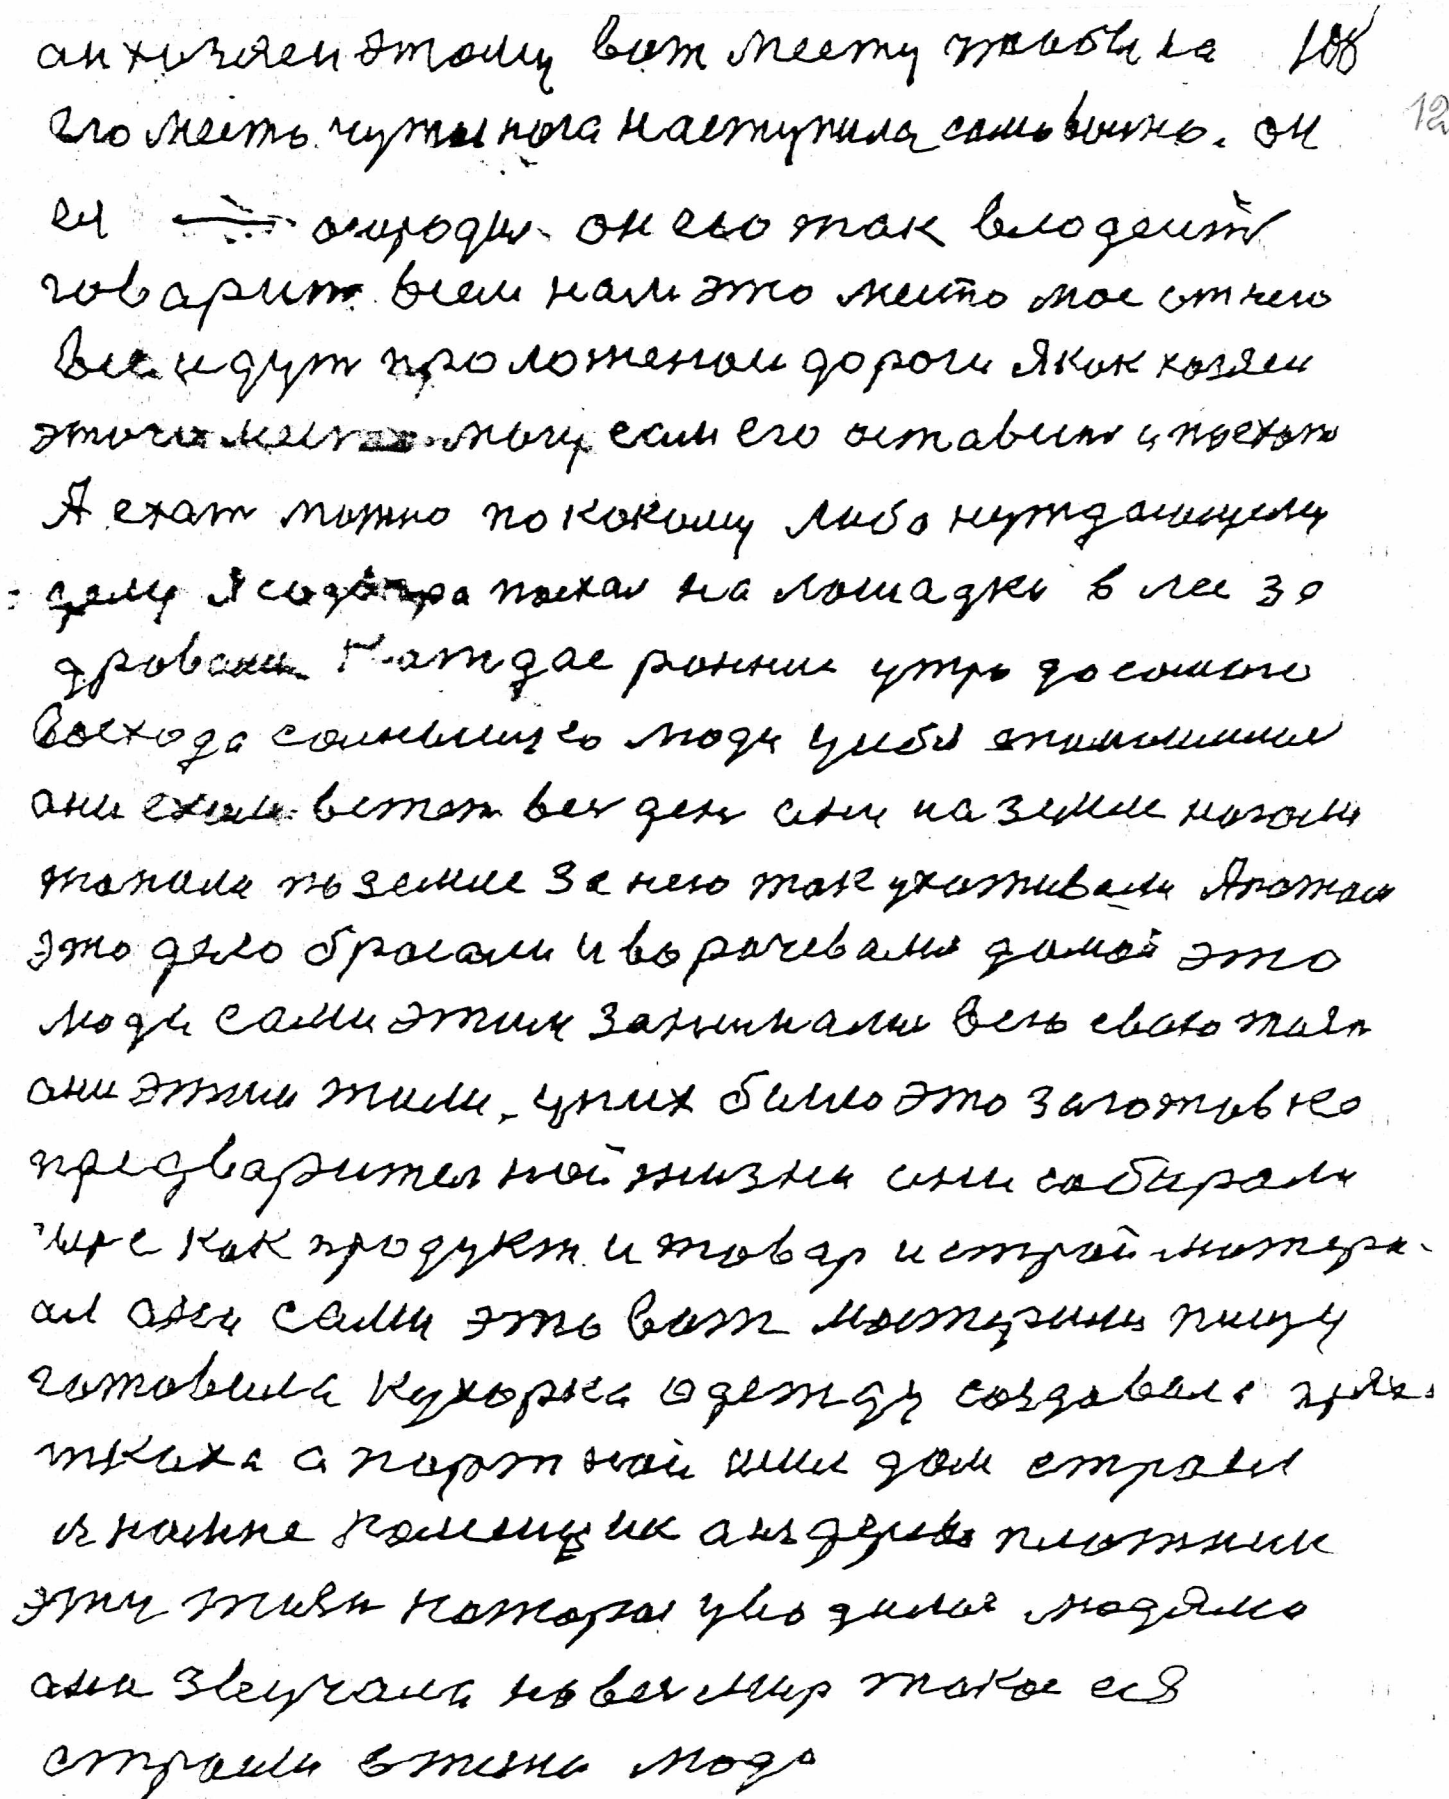 он хозяен этому вот месту чтобы на 108
его месть чужая нога наступила самовольно. он 12
ея огородил. он ею так владеит
говарит всем нам это место мое от нею
все идут проложеною дороги Я как хозяен
этого места могу если его оставить и поехать
А ехат можно по какому либо нуждающему
делу я сегодня поехал на лошадки в лес за
дровами Каждае ранние утро до самого
восхода солнышко люди уибя
они ехали встают весь день они на земле ногами
топали по земле за нею так ухаживали А потом
это дело бросали и ворачевались домой это
люди сами этим занимались всю свою жизн
они этим жили. у них было это заготовка
предварителной жизни они собирали
сырье как продукт и товар и строй матери-
ал они сами это вот мастерили пищу
готовила кухорка одежду создавала пря
ткаха а портной шил дом строил
с камне каменщик а из дерева плотник
эту жизн котора уводилас людями
она звучала на весь мир такое ея
строили в жизни люди